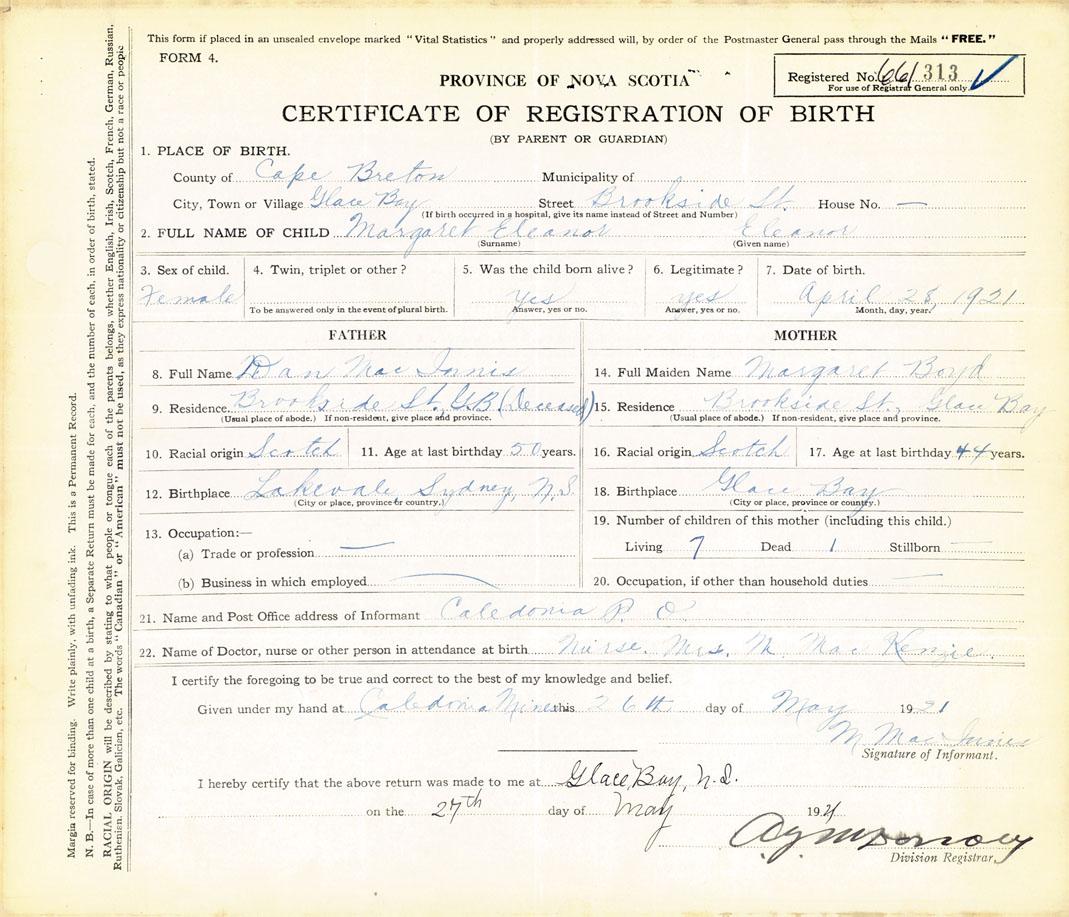 This form if placed in an unsealed envelope marked "Vital Statistics" and properly addressed will, by order of the Postmaster General pass through the Mails "FREE."
FORM 4.
PROVINCE OF NOVA SCOTIA
Registered No. 66 / 313
For use of Registrar General only.
CERTIFICATE OF REGISTRATION OF BIRTH
(BY PARENT OR GUARDIAN)
1. PLACE OF BIRTH.
County of Cape Breton Municipality of
City, Town or Village Glace Bay Street Brookside St. House No. —
(If birth occurred in a hospital, give its name instead of Street and Number)
2. FULL NAME OF CHILD Margaret Eleanor Eleanor
(Surname) (Given name)
3. Sex of child. 4. Twin, triplet or other? 5. Was the child born alive? 6. Legitimate? 7. Date of birth.
Female yes yes April 28, 1921
To be answered only in the event of plural birth. Answer, yes or no. Answer, yes or no. Month, day, year.
FATHER
8. Full Name Dan Mac Innis
9. Residence Brookside St. G.B. (Deceased)
(Usual place of abode.) If non-resident, give place and province.
10. Racial origin Scotch 11. Age at last birthday 50 years.
12. Birthplace Lakevale, Sydney, N.S.
(City or place, province or country.)
13. Occupation:—
(a) Trade or profession —
(b) Business in which employed —
MOTHER
14. Full Maiden Name Margaret Boyd
15. Residence Brookside St., Glace Bay
(Usual place of abode.) If non-resident, give place and province.
16. Racial origin Scotch 17. Age at last birthday 44 years.
18. Birthplace Glace Bay
(City or place, province or country.)
19. Number of children of this mother (including this child.)
Living 7 Dead 1 Stillborn —
20. Occupation, if other than household duties —
21. Name and Post Office address of Informant Caledonia P. O.
22. Name of Doctor, nurse or other person in attendance at birth Nurse. Mrs. M. Mac Kenzie.
I certify the foregoing to be true and correct to the best of my knowledge and belief.
Given under my hand at Caledonia Mines this 26th day of May 1921
M. Mac Innis
Signature of Informant.
I hereby certify that the above return was made to me at Glace Bay, N.S.
on the 27th day of May 1921
Division Registrar.
Margin reserved for binding. Write plainly, with unfading ink. This is a Permanent Record.
N. B.—In case of more than one child at a birth, a Separate Return must be made for each, and the number of each, in order of birth, stated.
RACIAL ORIGIN will be described by stating to what people or tongue each of the parents belongs, whether English, Irish, Scotch, French, German, Russian,
Ruthenian, Slovak, Galician, etc. The words "Canadian" or "American" must not be used, as they express nationality or citizenship but not a race or people